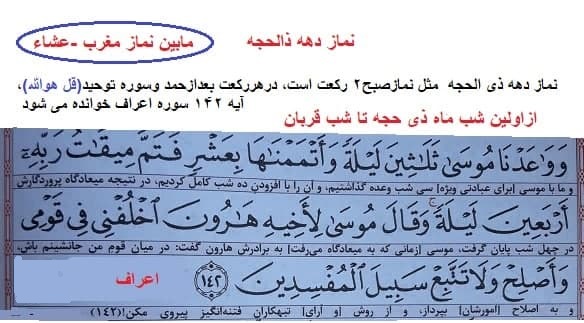 نماز دهه ذالحجه مابین نماز مغرب -عشاء
نماز دهه ذی الحجه مثل نمازصبح۲ رکعت است، درهررکعت بعدازحمد وسوره توحید(قل هوالله)،
آیه ۱۴۲ سوره اعراف خوانده می شود
ازاولین شب ماه ذی حجه تا شب قربان
وَوَاعَدْنَا مُوسَىٰ ثَلَاثِينَ لَيْلَةً وَأَتْمَمْنَاهَا بِعَشْرٍ فَتَمَّ مِيقَاتُ رَبِّهِ
و ما با موسی [برای عبادتی ویژه] سی شب وعده گذاشتیم، و آن را با افزودن ده شب کامل کردیم، در نتیجه میعادگاه پروردگارش
أَرْبَعِينَ لَيْلَةً وَقَالَ مُوسَىٰ لِأَخِيهِ هَارُونَ اخْلُفْنِي فِي قَوْمِي
در چهل شب پایان گرفت، موسی [زمانی که به میعادگاه می‌رفت] به برادرش هارون گفت: در میان قوم من جانشینم باش،
وَأَصْلِحْ وَلَا تَتَّبِعْ سَبِيلَ الْمُفْسِدِينَ ۱۴۲ اعراف
و به اصلاح [امورشان] بپرداز، و از روش [و آرای] تبهکاران فتنه‌انگیز پیروی مکن!(۱۴۲)